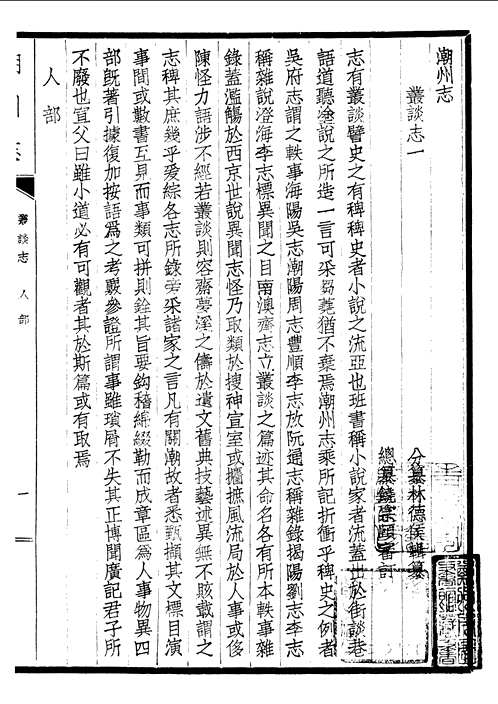 潮州志
叢談志一
分纂林德侯輯纂
總纂饒宗頤審訂
志有叢談譬史之有稗稗史者小說之流亞也班書稱小說家者流蓋出於街談巷
語道聽塗說之所造一言可采芻蕘猶不棄焉潮州志乘所記折衝乎稗史之例者
吳府志謂之軼事海陽吳志潮陽周志豐順李志放阮通志稱雜錄揭陽劉志李志
稱雜說澄海李志標異聞之目南澳齊志立叢談之篇迹其命名各有所本軼事雜
錄蓋濫觴於西京世說異聞志怪乃取類於搜神宣室或攟摭風流局於人事或侈
陳怪力語涉不經若叢談則容齋夢溪之儔於遺文舊典技藝述異無不賅載謂之
志稗其庶幾乎爰綜各志所錄旁采諸家之言凡有關潮故者悉甄擷其文標目演
事間或數書互見而事類可拼則銓其旨要鈎稽綿綴勒而成章區為人事物異四
部既著引據復加按語爲之考覈參證所謂事雖瑣屑不失其正博聞廣記君子所
不廢也宣父曰雖小道必有可觀者其於斯篇或有取焉
人部
叢談志 人部
一